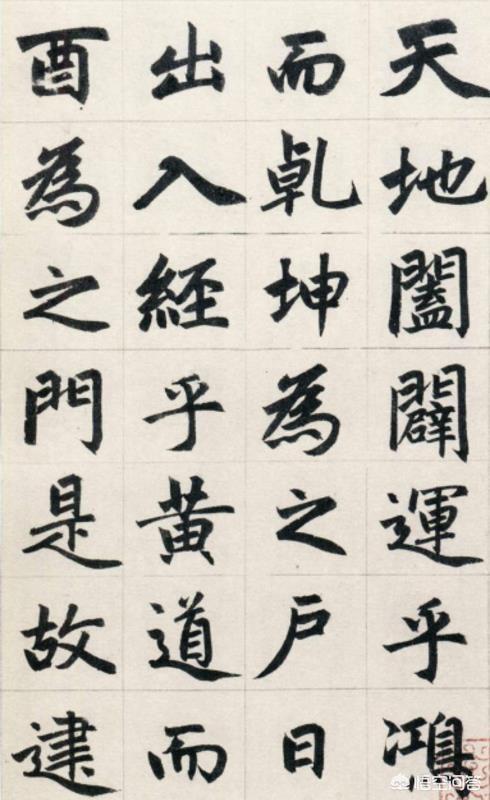 天地闔闢運乎鴻
而乹坤為之戶日
出入經乎黃道而
酉為之門是故建
悟空问答